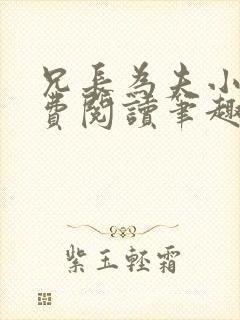 兄長為夫小
費閱讀筆趣
紫玉輕霜